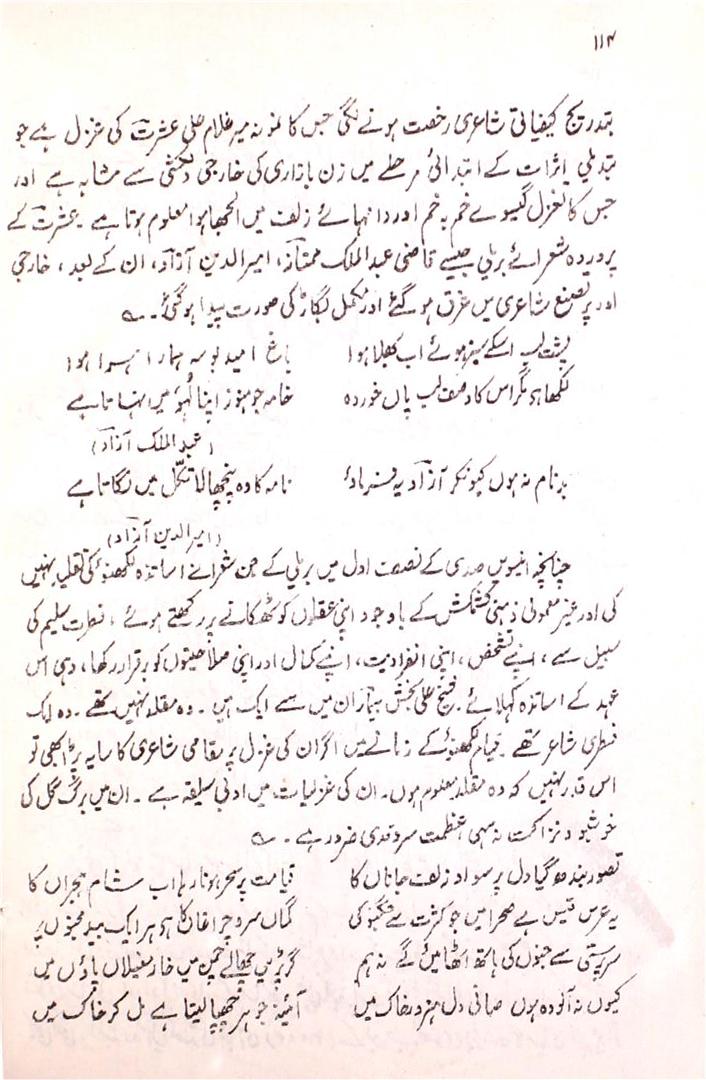 ۱۱۴
بتدریج کیفیاتی شاعری رخصت ہونے لگی جس کا نمونہ میر غلام علی عشرت کی غزل ہے جو
تبدیلی اثرات کے ابتدائی مرحلے میں زن بازاری کی خارجی دلکشی سے مشابہ ہے اور
جس کا تغزل گیسوے خم بہ خم اور دانہائے زلف میں الجھا ہوا معلوم ہوتا ہے۔ عشرت کے
پروردہ شعرائے بریلی جیسے قاضی عبدالملک ممتاز، امیرالدین آزاد، ان کے بعد، خارجی
اور پر تصنع شاعری میں غرق ہو گئے اور مکمل بگاڑ کی صورت پیدا ہو گئی۔ ؎
پشت لب اسکے سبز ہوئے اب بھلا ہوا باغ امید بوسہ ہمارا ہرا ہوا
لکھا ہی مگر اس کا وصف لب پاں خوردہ خامہ جو ہنوز اپنا لہو میں نہاتا ہے
(عبدالملک آزاد)
بدنام نہ ہوں کیونکر آزاد یہ فرماؤ نامہ کا وہ پنچھالا تکل میں لگاتا ہے
(امیرالدین آزاد)
چنانچہ انیسویں صدی کے نصف اول میں بریلی کے جن شعرا نے اساتذہ لکھنؤ کی تقلید نہیں
کی اور غیر معمولی ذہنی کشمکش کے باوجود اپنی عقلوں کو ٹھکانے پر رکھتے ہوئے، فطرت سلیم کی
سبیل سے، اپنے تشخص، اپنی انفرادیت، اپنے کمال اور اپنی صلاحیتوں کو برقرار رکھا، وہی اس
عہد کے اساتذہ کہلائے۔ شیخ علی بخش بیمار ان میں سے ایک ہیں۔ وہ مقلد نہیں تھے۔ وہ ایک
فطری شاعر تھے۔ قیام لکھنؤ کے زمانے میں اگر ان کی غزل پر مقامی شاعری کا سایہ پڑا بھی تو
اس قدر نہیں کہ وہ مقلد معلوم ہوں۔ ان کی غزلیات میں ادبی سلیقہ ہے۔ ان میں برگ گل کی
خوشبو و نزاکت نہ سہی عظمت سرو قدی ضرور ہے۔ ؎
تصور بندھ گیا دل پر سواد زلف جاناں کا قیامت پر سحر ہونا رہا اب شام ہجراں کا
یہ عرس قیس ہے صحرا میں جو کثرت سے جگنو کی گماں سرو چراغاں کا ہی ہر ایک بید مجنوں پر
سرپرستی سے جنوں کی ہاتھ اٹھائیں گے نہ ہم گر پڑیں چھالے چمن میں خار مغیلاں پاؤں میں
کیوں نہ آلودہ ہوں صافی دل ہنرور خاک میں آئینہ جوہر چھپا لیتا ہے مل کر خاک میں